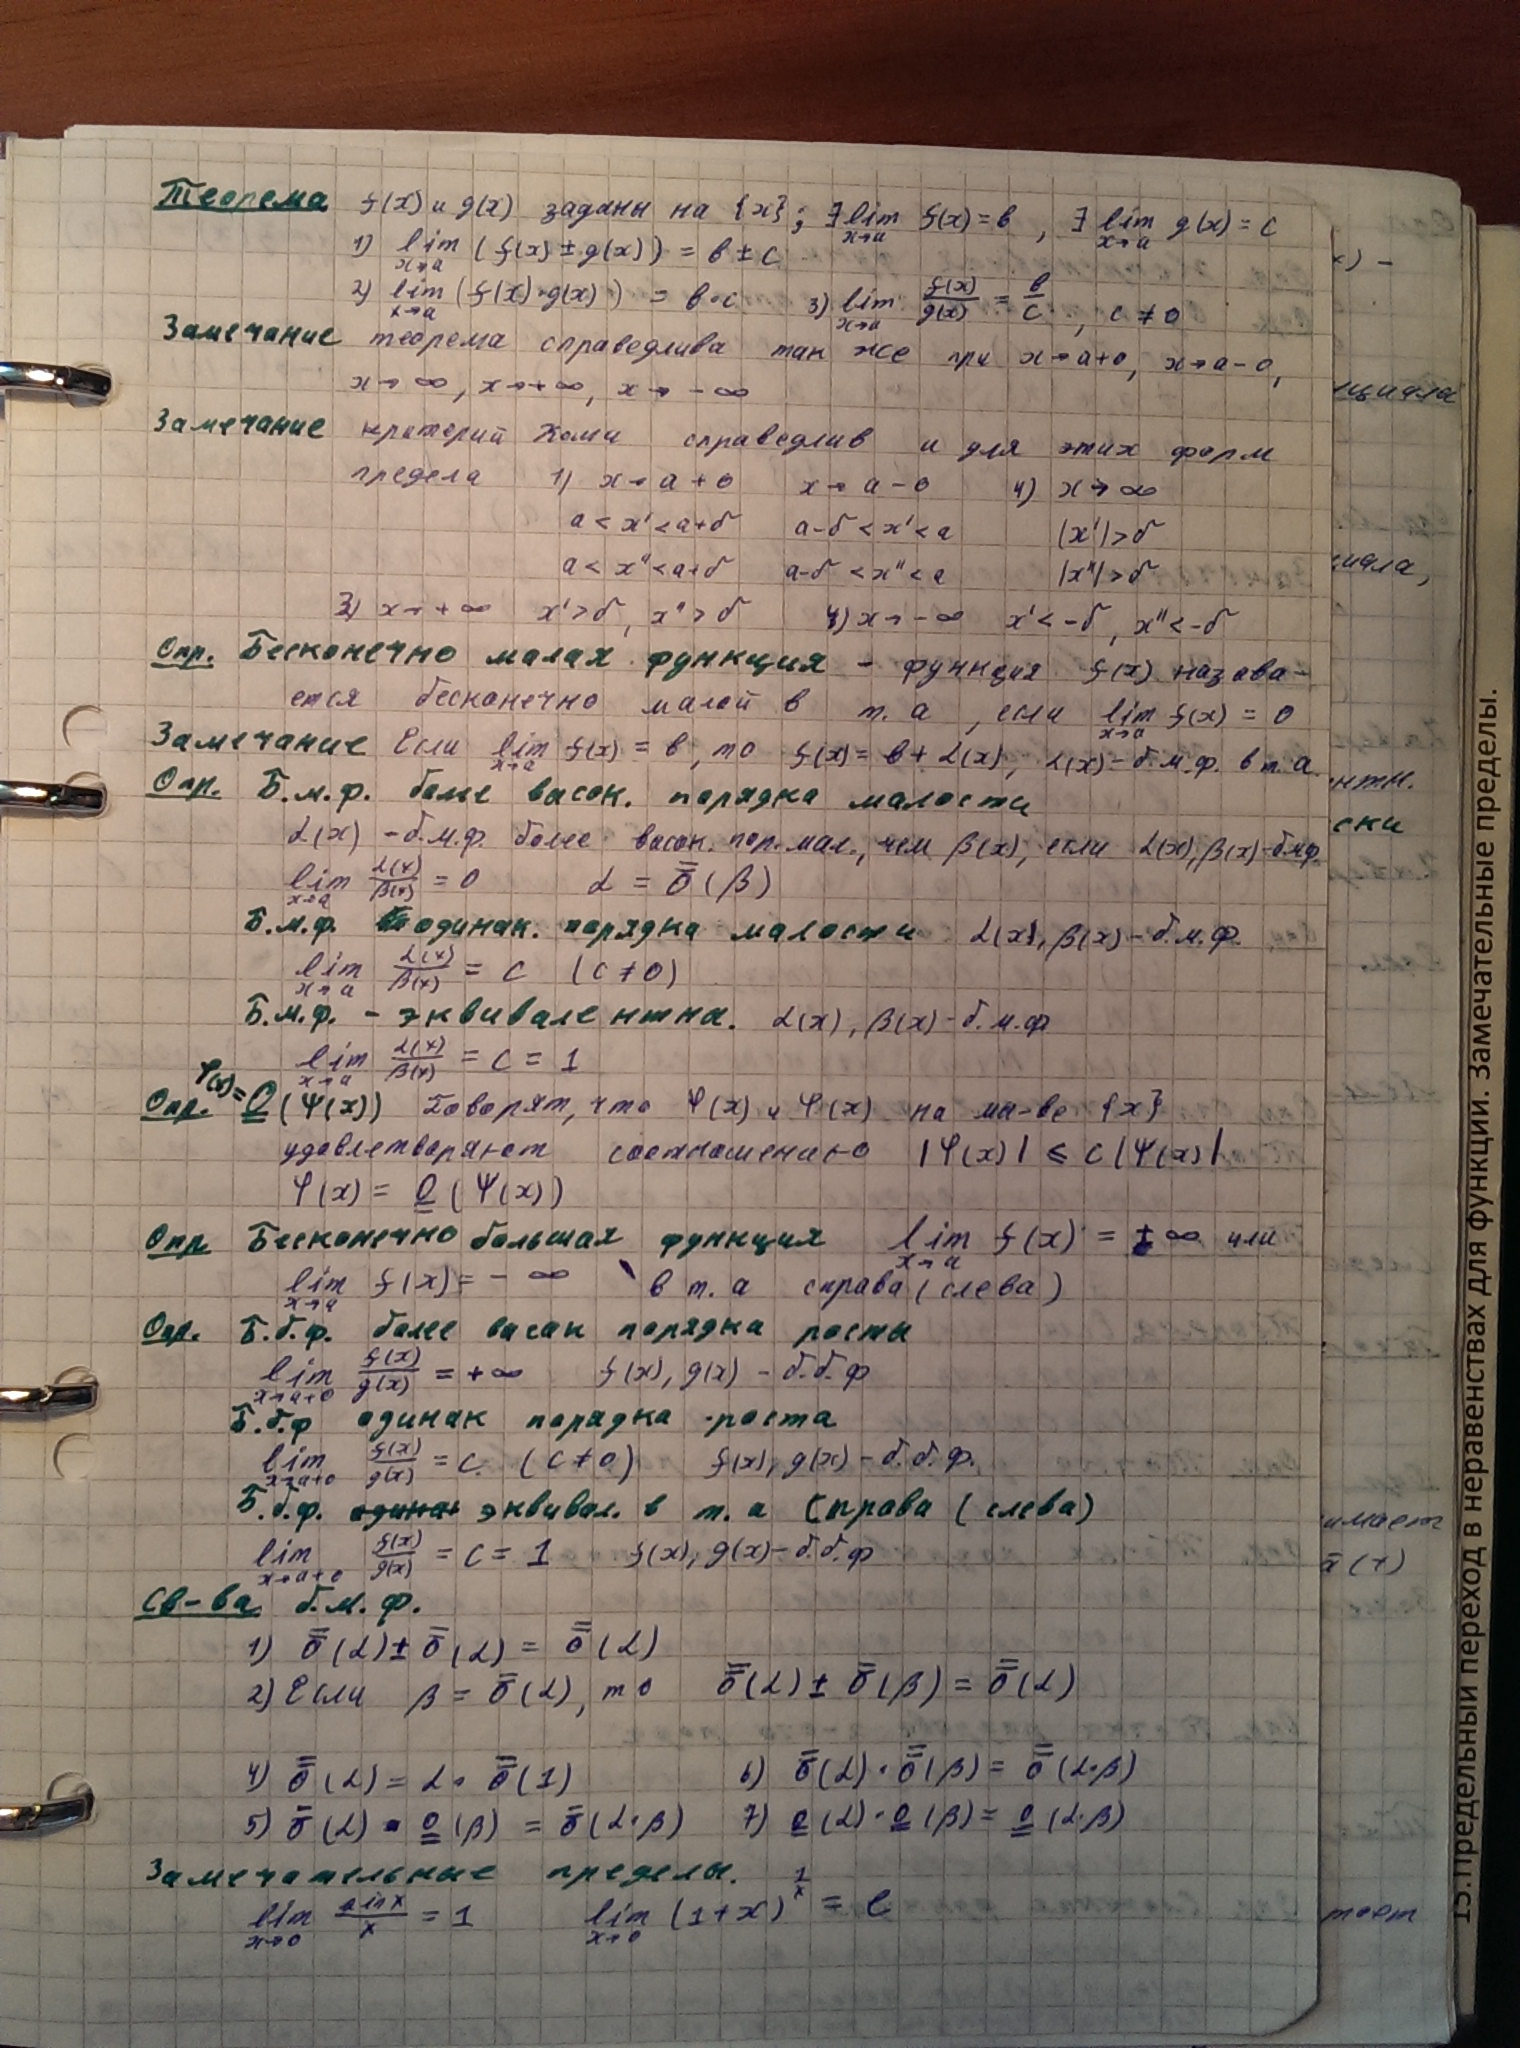 Теорема f(x) и g(x) заданы на {x}; ∃ lim x→a f(x) = b, ∃ lim x→a g(x) = c
1) lim x→a (f(x) ± g(x)) = b ± c
2) lim x→a (f(x)·g(x)) = b·c 3) lim x→a f(x)/g(x) = b/c, c ≠ 0
Замечание теорема справедлива так же при x→a+0, x→a-0,
x→∞, x→+∞, x→-∞
Замечание критерий Коши справедлив и для этих форм
предела 1) x→a+0 x→a-0 4) x→∞
a<x'<a+δ a-δ<x'<a |x'|>δ
a<x''<a+δ a-δ<x''<a |x''|>δ
3) x→+∞ x'>δ, x''>δ 4) x→-∞ x'<-δ, x''<-δ
Опр. Бесконечно малая функция - функция f(x) называ-
ется бесконечно малой в т. a, если lim x→a f(x) = 0
Замечание Если lim x→a f(x) = b, то f(x) = b + α(x), α(x) - б.м.ф. в т. a
Опр. Б.м.ф. более высок. порядка малости
α(x) - б.м.ф. более высок. пор. мал., чем β(x), если α(x), β(x) - б.м.ф.
lim x→a α(x)/β(x) = 0 α = ō(β)
Б.м.ф. одинак. порядка малости α(x), β(x) - б.м.ф.
lim x→a α(x)/β(x) = c (c ≠ 0)
Б.м.ф. - эквивалентны. α(x), β(x) - б.м.ф
lim x→a α(x)/β(x) = c = 1
φ(x)=
Опр. O(ψ(x)) Говорят, что φ(x) и ψ(x) на мн-ве {x}
удовлетворяют соотношению |φ(x)| ≤ c|ψ(x)|
φ(x) = O(ψ(x))
Опр Бесконечно большая функция lim x→a f(x) = ± ∞ или
lim x→a f(x) = - ∞ в т. a справа (слева)
Опр. Б.б.ф. более высок порядка росты
lim x→a+0 f(x)/g(x) = +∞ f(x), g(x) - б.б.ф
Б.б.ф одинак порядка роста
lim x→a+0 f(x)/g(x) = c (c ≠ 0) f(x), g(x) - б.б.ф.
Б.б.ф. эквивал. в т. a справа (слева)
lim x→a+0 f(x)/g(x) = c = 1 f(x), g(x) - б.б.ф
Св-ва б.м.ф.
1) ō(α) ± ō(α) = ō(α)
2) Если β = ō(α), то ō(α) ± ō(β) = ō(α)
4) ō(α) = α · ō(1) 6) ō(α) · ō(β) = ō(α·β)
5) ō(α) · o(β) = ō(α·β) 7) o(α) · o(β) = o(α·β)
Замечательные пределы.
lim x→0 sin x/x = 1 lim x→0 (1+x)^1/x = e
15. Предельный переход в неравенствах для функции. Замечательные пределы.